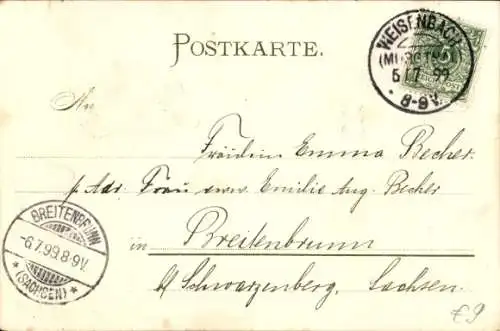 POSTKARTE.
WEISENBACH
(MURGTHAL)
5.7.99
8-9V.
REICHSPOST
An
Fräulein Emma Becher.
p. Adr. Frau verw. Emilie Aug. Becher
in Breitenbrunn
b/ Schwarzenberg, Sachsen.
BREITENBRUNN
-6.7.99.8-9V.
* (SACHSEN) *
£9